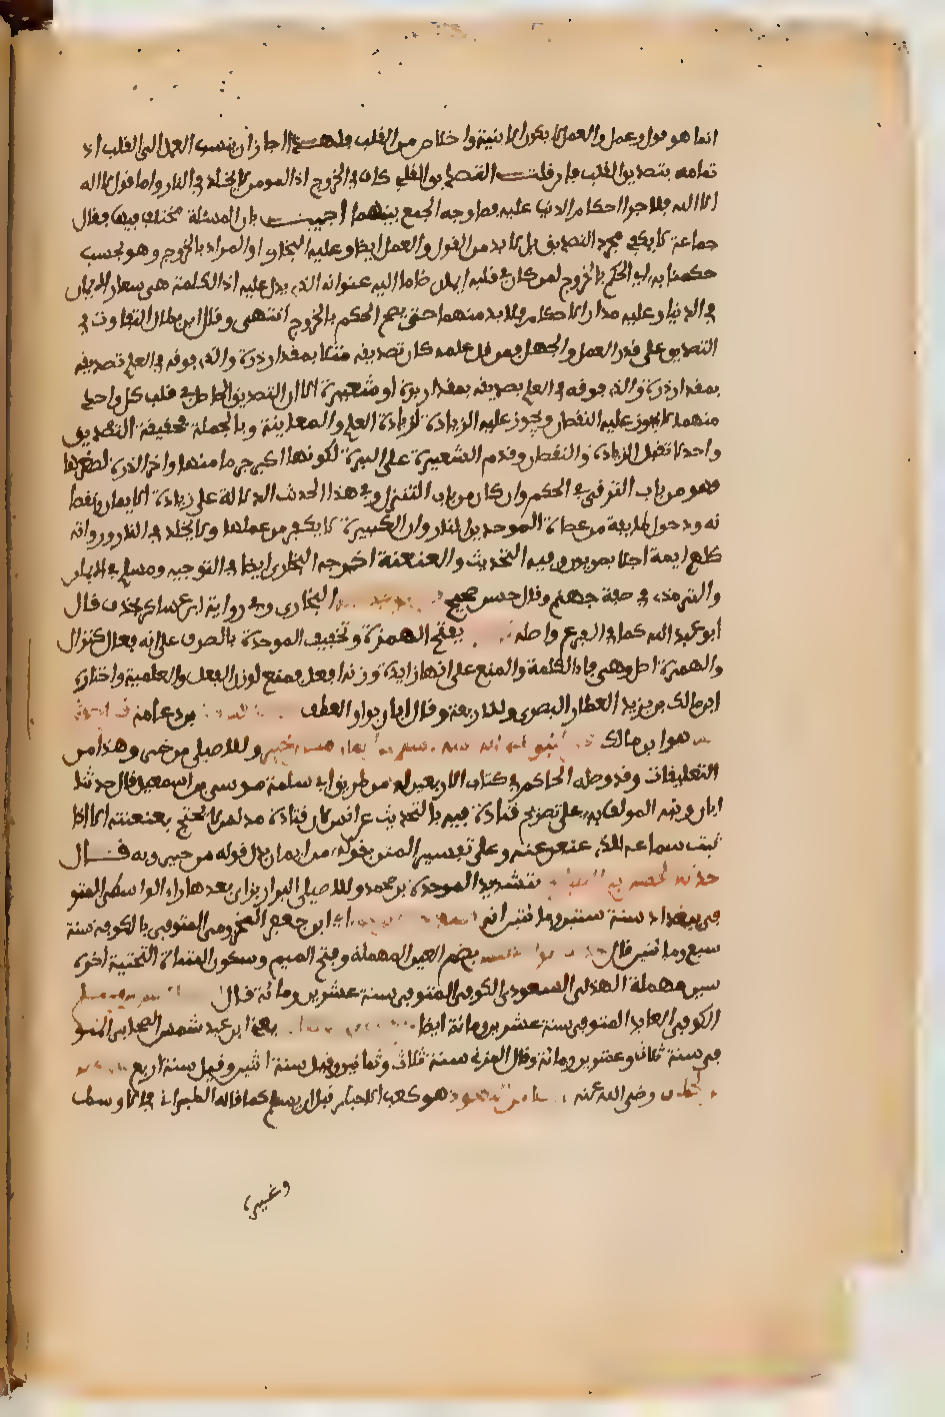 انما هو قول وعمل والعمل لا يكون الا بنية واخلاص من القلب فلهذا جاز ان ينسب العمل الى القلب اذ
تمامه بتصديق القلب فان قلت التصديق القلبي كاف في الخروج اذ المومن لا يخلد في النار واما قول لا اله
الا الله فلاجرا احكام الدنيا عليه فما وجه الجمع بينهما اجيب بان المسئلة مختلف فيها فقال
جماعة لا يكفي مجرد التصديق بل لا بد من القول والعمل ايضا وعليه البخاري او المراد بالخروج وهو بحسب
حكمنا به اي الحكم بالخروج لمن كان في قلبه ايمان ضاما اليه عنوانه الذي يدل عليه اذ الكلمة هي شعار الايمان
في الدنيا وعليه مدار الاحكام فلا بد منهما حتى يصح الحكم بالخروج انتهى وقال ابن بطال التفاوت في
التصديق على قدر العلم والجهل فمن قل علمه كان تصديقه مثلا بمقدار ذرة والذي فوقه في العلم تصديقه
بمقدار ذرة والذي فوقه في العلم تصديقه بمقدار برة او شعيرة الا ان التصديق الحاصل في قلب كل واحد
منهما لا يجوز عليه النقصان ويجوز عليه الزيادة لزيادة العلم والمعاينة وبالجملة فحقيقة التصديق
واحد لا تقبل الزيادة والنقصان وقدم الشعيرة على البرة لكونها اكبر جرما منها واخر الذرة لصغرها
فهو من باب الترقي في الحكم وان كان من باب التنزل وفي هذا الحديث الدلالة على زيادة الايمان ونقصا
نه ودخول طايفة من عصاة الموحدين النار وان الكبيرة لا يكفر من عملها ولا يخلد في النار ورواته
كلهم ايمة اجلا بصريون وفيه التحديث والعنعنة اخرجه البخاري ايضا في التوحيد ومسلم في الايمان
والترمذي في صفة جهنم وقال حسن صحيح البخاري وفي رواية ابن عساكر بحذف قال
ابو عبد الله كما في الفرع واصله بفتح الهمزة وتخفيف الموحدة بالصرف على انه فعال كغزال
والهمزة اصل وهي فاء الكلمة والمنع على انها زايدة ووزنه افعل فمنع لوزن الفعل والعلمية واختاره
ابن مالك بن يزيد العطار البصري وللاربعة وقال ابان بواو العطف بن دعامة
هو ابن مالك وللاصيلي من خير وهذا من
التعليقات وقد وصله الحاكم في كتاب الاربعين له من طريق ابي سلمة موسى بن اسمعيل قال حدثنا
ابان ونبه المولف به على تصريح قتادة فيه بالتحديث عن انس لان قتادة مدلس لا يحتج بعنعنته الا اذا
ثبت سماعه للذي عنعن عنه وعلى تفسير المتن بقوله من ايمان بدل قوله من خير وبه قال
بتشديد الموحدة بن محمد وللاصيلي البزار بزاي بعدها راء الواسطي المتو
في ببغداد سنة ستين وماتين انه اي ابن جعفر المخزومي المتوفى بالكوفة سنة
سبع وماتين قال بضم العين المهملة وفتح الميم وسكون المثناة التحتية اخره
سين مهملة الهذلي المسعودي الكوفي المتوفى سنة عشرين ومائة قال
الكوفي العابد المتوفى سنة عشرين ومائة ايضا يعني ابن عبد شمس الصحابي المتو
في سنة ثلاث وعشرين ومائة وقال المزي سنة ثلاث وثمانين وقيل سنة اثنين وقيل سنة اربع
رضي الله عنه هو كعب الاحبار قبل ان يسلم كما قاله الطبراني في الاوسط
وغيره